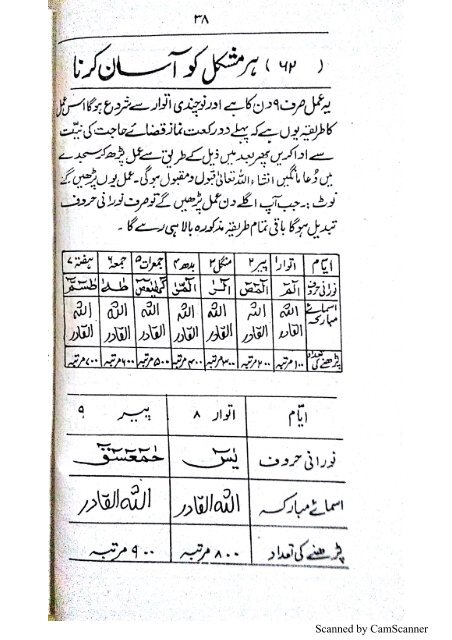 ۳۸
(۶۲) ہر مشکل کو آسان کرنا
یہ عمل صرف ۹ دن کا ہے اور نوچندی اتوار سے شروع ہوگا اس عمل
کا طریقہ یوں ہے کہ پہلے دو رکعت نماز قضائے حاجت کی نیت
سے ادا کریں پھر بعد میں ذیل کے طریق سے عمل پڑھ کر سجدے
میں دعا مانگیں انشاء اللہ تعالیٰ قبول و مقبول ہوگی۔ عمل یوں پڑھیں گے
نوٹ:۔ جب آپ اگلے دن عمل پڑھیں گے تو صرف نورانی حروف
تبدیل ہوگا باقی تمام طریقہ مذکورہ بالا ہی رہے گا۔
ایام اتوار ۱ پیر ۲ منگل ۳ بدھ ۴ جمعرات ۵ جمعہ ۶ ہفتہ ۷
نورانی حروف الٓمٓ الٓمٓصٓ الٓرٰ الٓمٓرٰ کٓھٰیٰعٓصٓ طٰہٰ طٰسٓمٓ
اسمائے اللہ اللہ اللہ اللہ اللہ اللہ اللہ
مبارکہ القادر القادر القادر القادر القادر القادر القادر
پڑھنے کی تعداد ۱۰۰ مرتبہ ۲۰۰ مرتبہ ۳۰۰ مرتبہ ۴۰۰ مرتبہ ۵۰۰ مرتبہ ۶۰۰ مرتبہ ۷۰۰ مرتبہ
ایام اتوار ۸ پیر ۹
نورانی حروف یٰسٓ حٰمٓعٓسٓقٓ
اسمائے مبارکہ اللہ القادر اللہ القادر
پڑھنے کی تعداد ۸۰۰ مرتبہ ۹۰۰ مرتبہ
Scanned by CamScanner